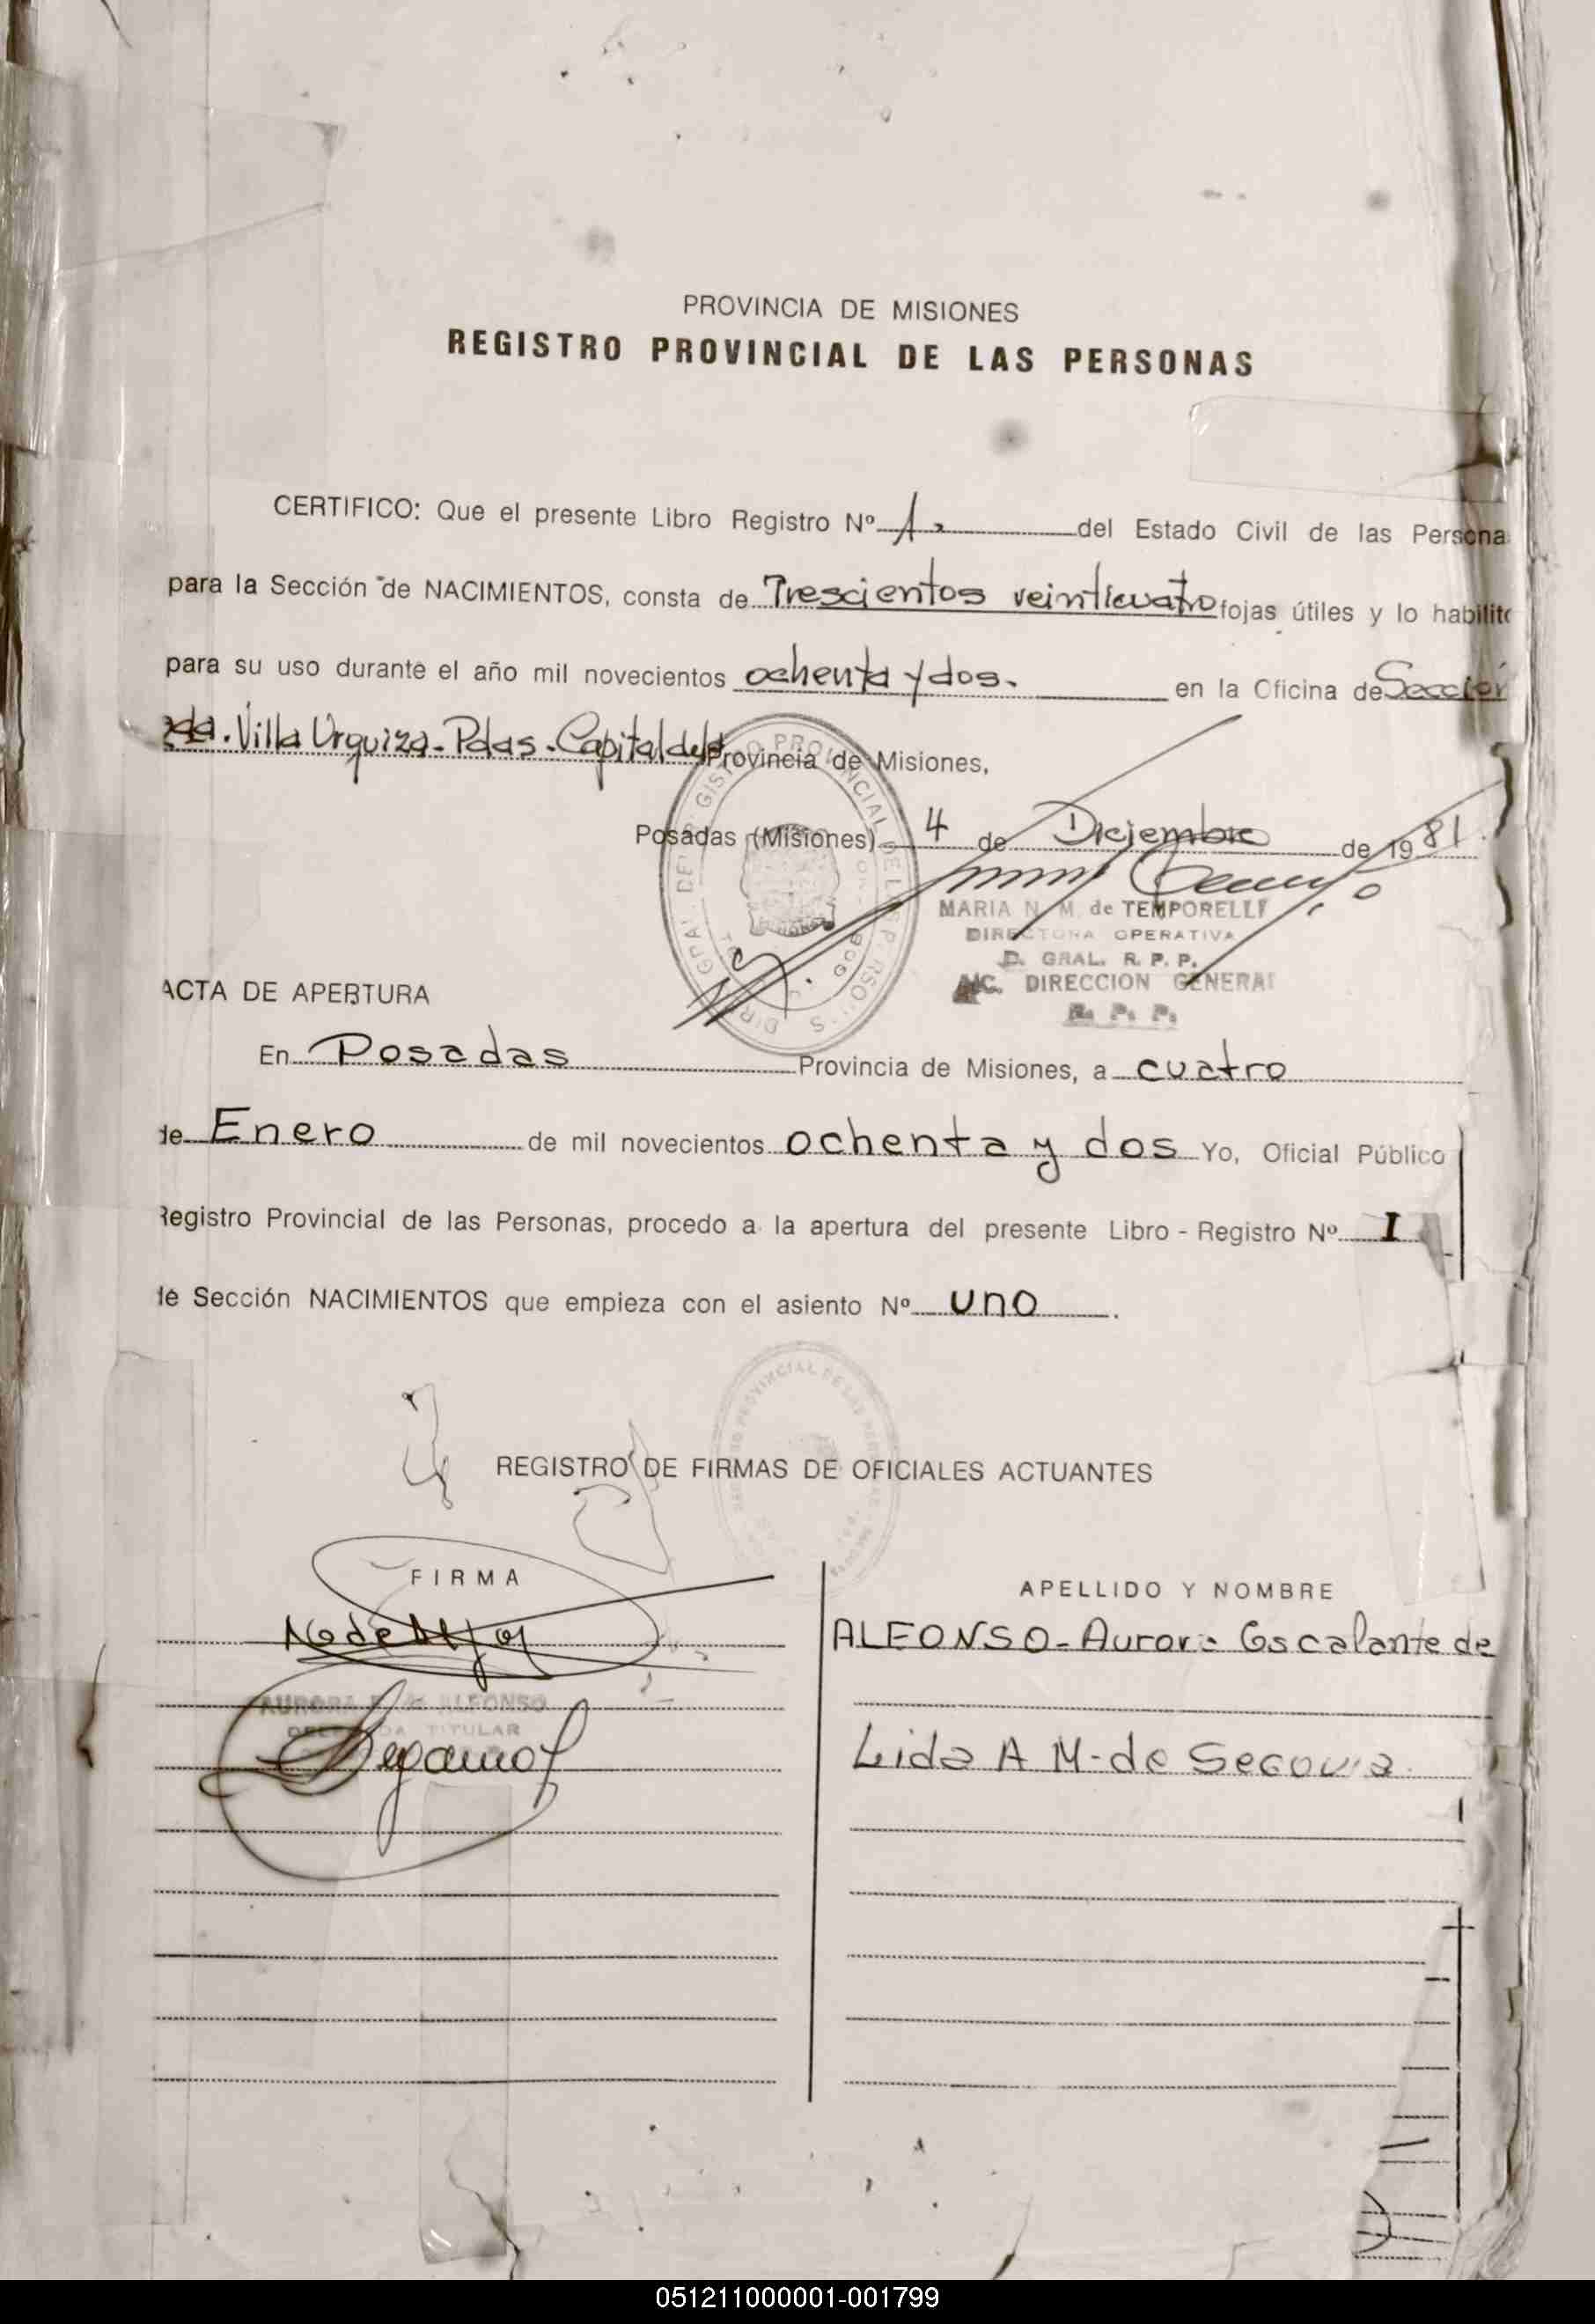 PROVINCIA DE MISIONES
REGISTRO PROVINCIAL DE LAS PERSONAS
CERTIFICO: Que el presente Libro Registro Nº 1. del Estado Civil de las Persona
para la Sección de NACIMIENTOS, consta de Trescientos veinticuatro fojas útiles y lo habilito
para su uso durante el año mil novecientos ochenta y dos. en la Oficina de Sección
2da. Villa Urquiza - Pdas - Capital de la Provincia de Misiones,
Posadas (Misiones) 4 de Diciembre de 1981.
MARIA N. M. de TEMPORELLI
DIRECTORA OPERATIVA
D. GRAL. R. P. P.
A/C. DIRECCION GENERAL
R. P. P.
ACTA DE APERTURA
En Posadas Provincia de Misiones, a cuatro
de Enero de mil novecientos ochenta y dos Yo, Oficial Público
Registro Provincial de las Personas, procedo a la apertura del presente Libro - Registro Nº I
de Sección NACIMIENTOS que empieza con el asiento Nº uno.
REGISTRO DE FIRMAS DE OFICIALES ACTUANTES
FIRMA APELLIDO Y NOMBRE
ALFONSO - Aurora Escalante de
AURORA E. de ALFONSO
TITULAR
Lida A M - de Segovia
051211000001-001799